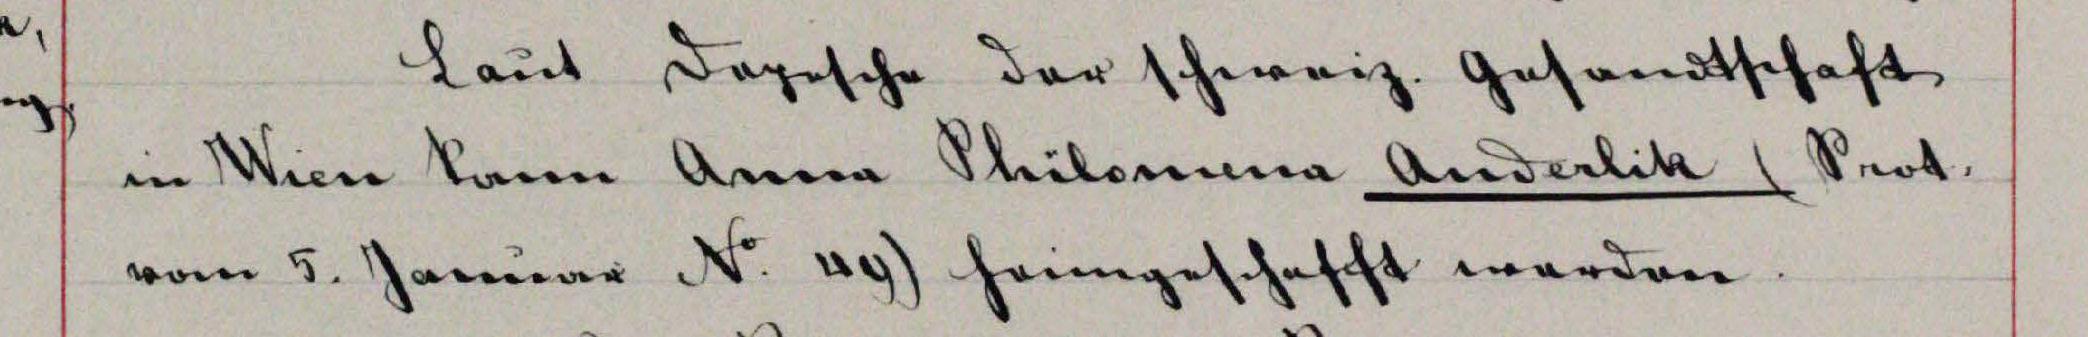 Laut Depesche der schweiz. Gesandtschaft
in Wien kann Anna Philomena Anderlik (Prot.
vom 5. Januar No. 49) heimgeschafft werden.